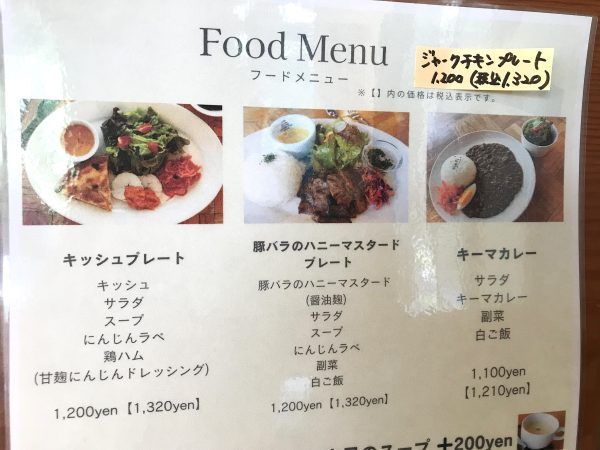 Food Menu
フードメニュー
ジャークチキンプレート
1,200 (税込1,320)
※【】内の価格は税込表示です。
キッシュプレート
キッシュ
サラダ
スープ
にんじんラペ
鶏ハム
(甘麹にんじんドレッシング)
1,200yen【1,320yen】
豚バラのハニーマスタード
プレート
豚バラのハニーマスタード
(醤油麹)
サラダ
スープ
にんじんラペ
副菜
白ご飯
1,200yen【1,320yen】
キーマカレー
サラダ
キーマカレー
副菜
白ご飯
1,100yen
【1,210yen】
のスープ +200yen